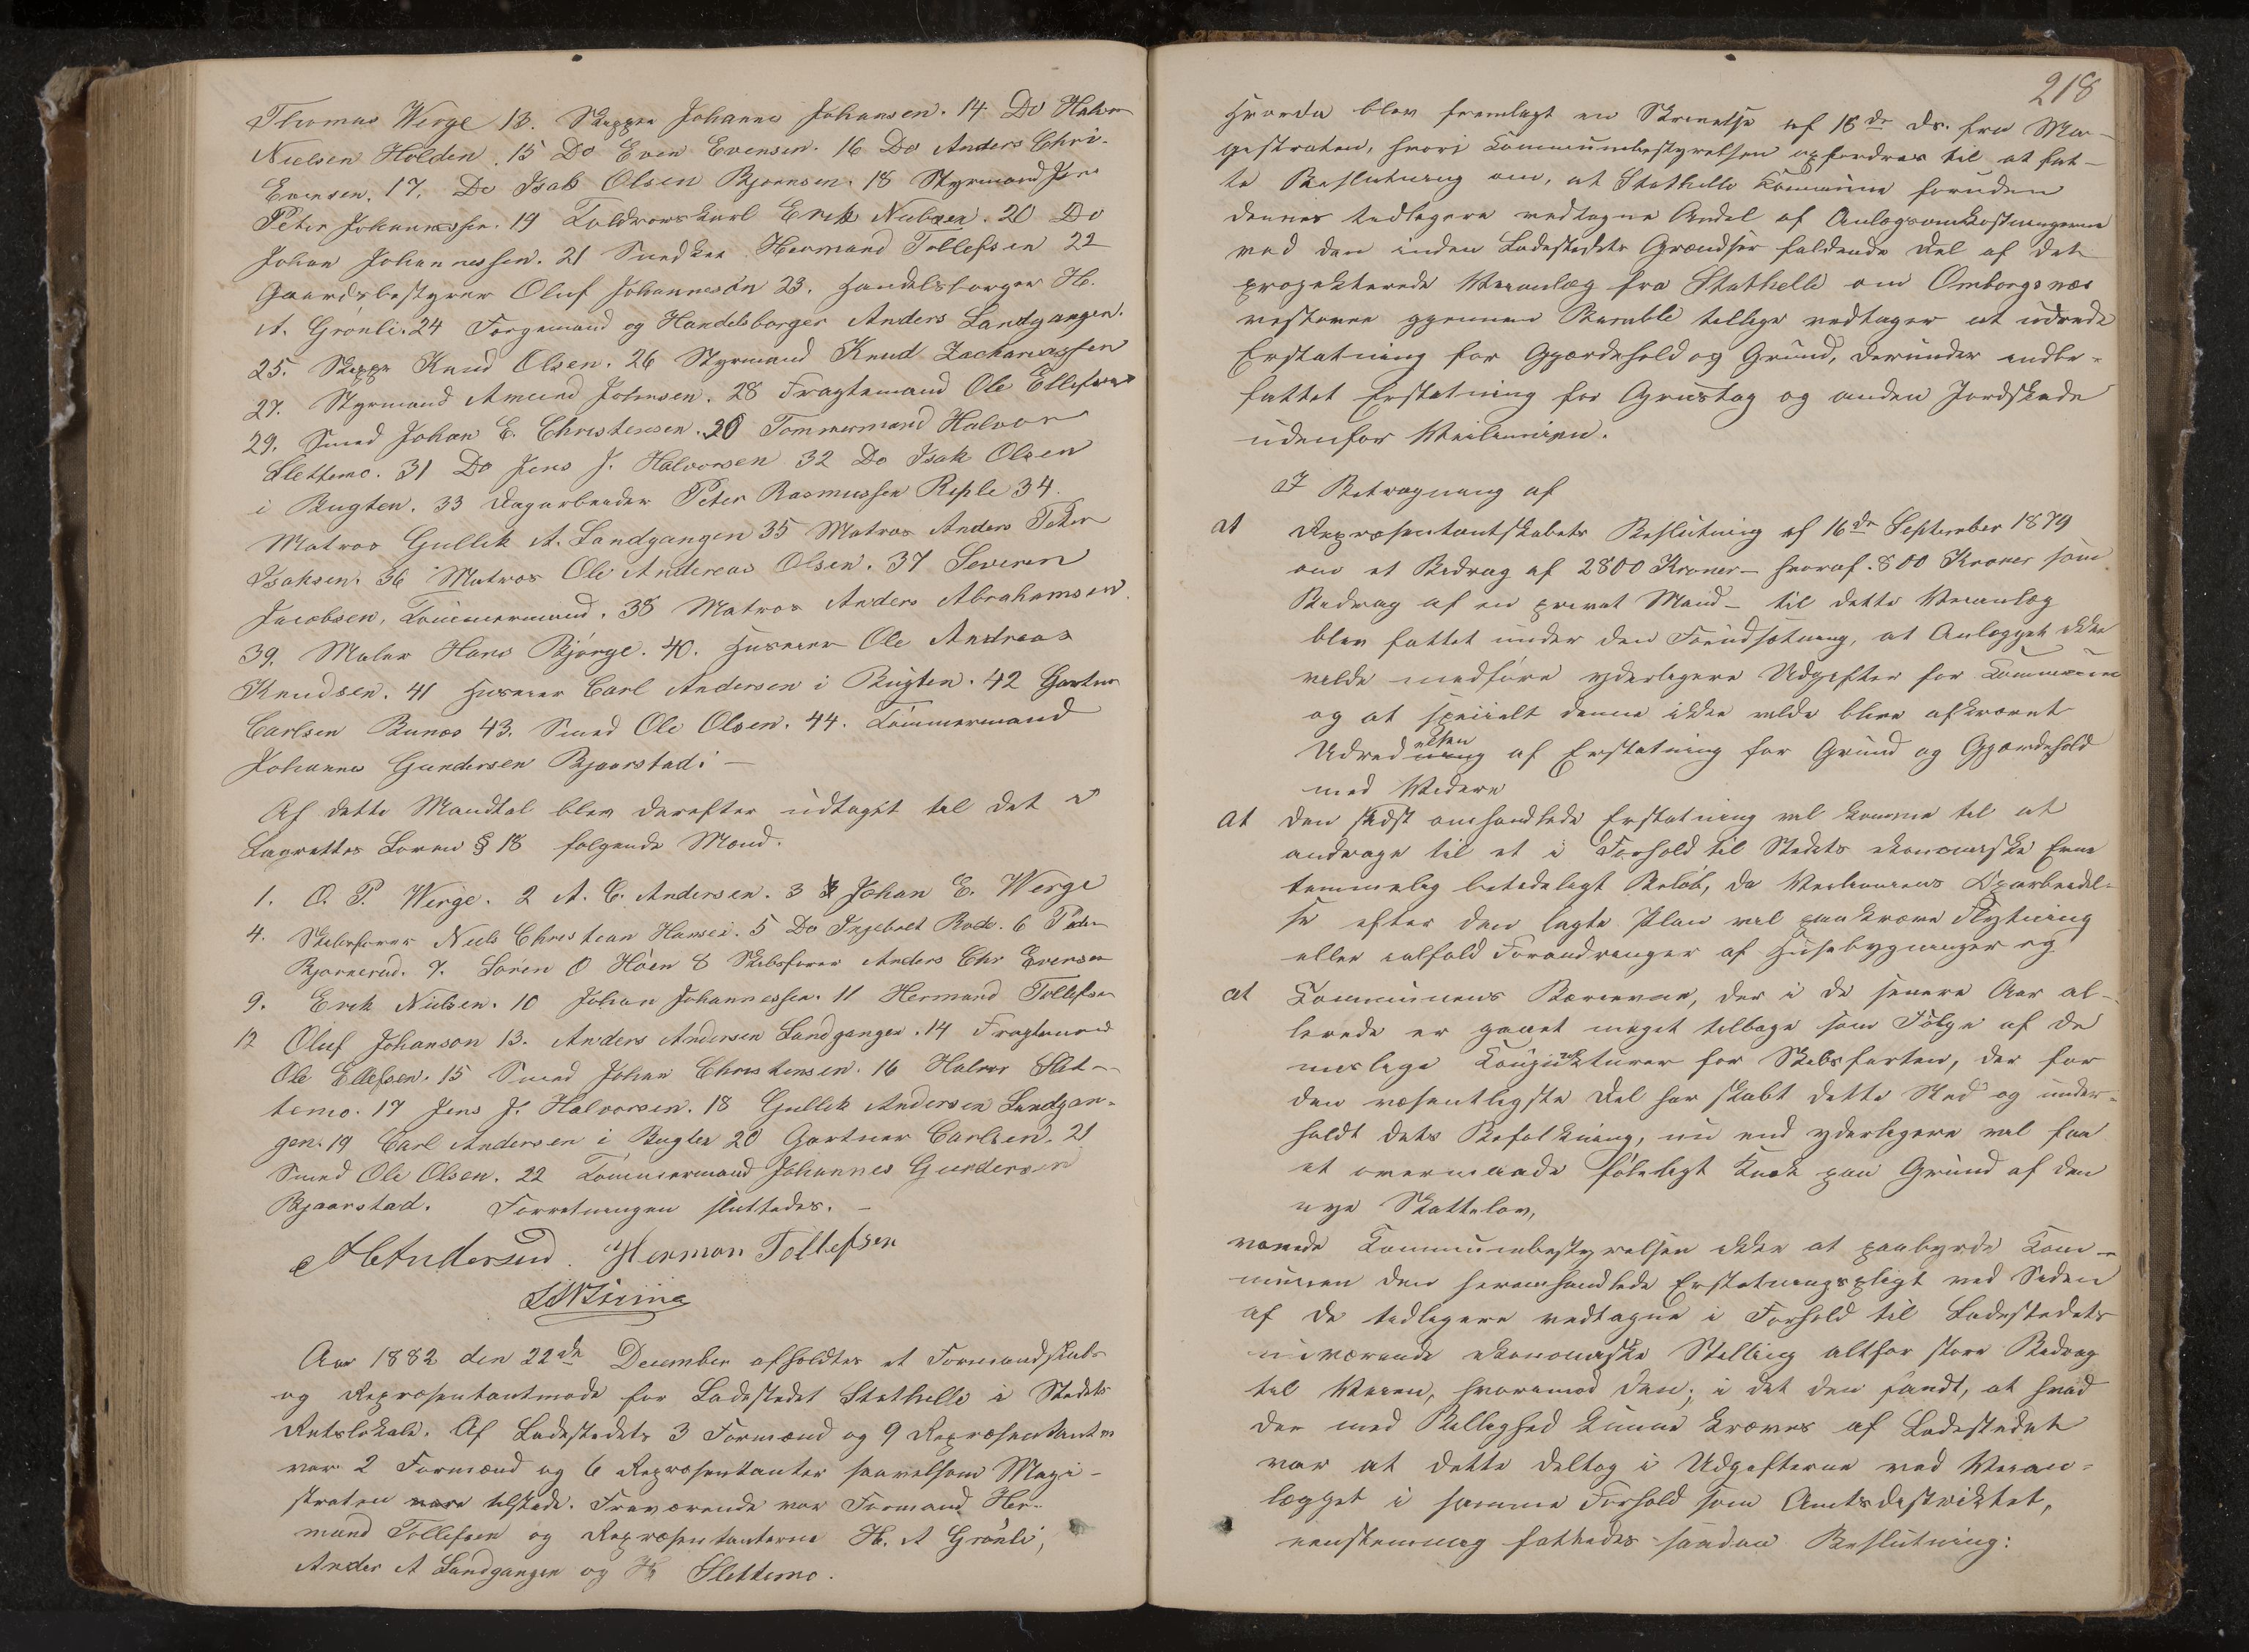 Thomas Werge 13. Skipper Johannes Johansen. 14 Do Halvor
Nielsen Holden. 15 Do Even Evensen. 16 Do Anders Chri.
Evensen. 17. Do Isak Olsen Bjørnsen. 18 Styrmand Jens
Peter Johannessen. 19 Toldrorskarl Erik Nielsen. 20 Do
Johan Johannessen. 21 Snedker Hermand Tollefsen 22
Gaardsbestyrer Oluf Johannesøn 23. Handelsborger H.
A. Grönli. 24 Forgemand og Handelsborger Anders Landgangen.
25. Skipper Knud Olsen. 26 Styrmand Knud Zachariassen
27. Styrmand Amund Johnsen. 28 Fragtemand Ole Ellefsen
29. Smed Johan E. Christensen. 30 Tommermand Halvor
Slettemo. 31 Do Jens J. Halvorsen 32 Do Isak Olsen
i Bugten. 33 Dagarbeider Peter Rasmussen Riple 34.
Matros Gullik A. Landgangen 35 Matros Anders Peter
Isaksen. 36 Matros Ole Andereas Olsen. 37 Severin
Jacobsen, Tömmermand. 38 Matros Anders Abrahamsen.
39. Maler Hans Bjørge. 40. Huseier Ole Andreas
Knudsen. 41 Huseier Carl Andersen i Bugten. 42 Gartner
Carlsen Bunæs 43. Smed Ole Olsen. 44. Tömmermand
Johannes Gundersen Bjaarstad. —
Af dette Mandtal blev derefter udtaget til det i
Lagrettes Loven § 18 følgende Mænd.
1. O. P. Werge. 2 A. C. Andersen. 3 Johan E. Werge
4. Skibsfører Niels Christian Hansen. 5 Do Ingebret Rode. 6 Peder
Bjørnerød. 7. Sören O Höen 8 Skibsfører Anders Chr Evensen
9. Erik Nielsen. 10 Johan Johannessen. 11 Hermand Tollefsen
12 Oluf Johanson 13. Anders Andersen Landgangen. 14 Fragtmand
Ole Ellefsen. 15 Smed Johan Christensen. 16 Halvor Slet-
temo. 17 Jens J. Halvorsen. 18 Gullik Andersen Landgan-
gen. 19 Carl Andersen i Bugten 20 Gartner Carlsen. 21
Smed Ole Olsen. 22 Tömmermand Johannes Gundersen
Bjaarstad. Forretningen sluttedes. —
A C Andersen. Herman Tollefsen
Aar 1882 den 22de December afholdtes et Formandskabs
og Repræsentantmøde for Ladestedet Stathelle i Stedets
Retslokale. Af Ladestedets 3 Formænd og 9 Repræsentanter
var 2 Formænd og 6 Repræsentanter saavelsom Magi-
straten vare tilstede. Fraværende var Formand Her-
mand Tollefsen og Repræsentanterne H. A Grönli,
Anders A Landgangen og H Slettemo.
218
Hvorda blev fremlagt en Skrivelse af 18de ds. fra Ma-
gistraten, hvori Kommunebestyrelsen opfordres til at fat-
te Beslutning om, at Stathelle Kommune foruden
dennes tidligere vedtagne Andel af Anlægsomkostningerne
ved den inden Ladestedets Grændser faldende Del af det
projekterede Veianlæg fra Stathelle om Omborgsnæs
vestover gjennem Bamble tillige vedtager at udrede
Erstatning for Gjærdehold og Grund, derunder indbe-
fattet Erstatning for Grustag og anden Jordskade
udenfor Veilinien.
I Betragtning af
at Repræsentantskabets Beslutning af 16de September 1879
om et Bidrag af 2800 Kroner – hvoraf 800 Kroner som
Bidrag af en privat Mand – til dette Veianlæg
blev fattet under den Forudsætning, at Anlægget ikke
vilde medføre yderligere Udgifter for Kommunen
og at specielt denne ikke vilde blive afkrævet
Udredelsen af Erstatning for Grund og Gjærdehold
med Videre
at den sidst omhandlede Erstatning vil komme til at
andrage til et i Forhold til Stedets økonomiske Evne
temmelig betydeligt Beløb, da Veiliniens Oparbeidel-
se efter den lagte Plan vil paakræve Flytning
eller ialfald Forandringer af Husebygninger og
at Kommunens Bæreevne, der i de senere Aar al-
lerede er gaaet meget tilbage som Følge af de
uheldige Konjunkturer for Skibsfarten, der for
den væsentligste Del har skabt dette Sted og under-
holdt dets Befolkning, nu end yderligere vil faa
et overmaade føleligt Knæk paa Grund af den
nye Skattelov,
vovede Kommunebestyrelsen ikke at paabyrde Kom-
munen den heromhandlede Erstatningspligt ved Siden
af de tidligere vedtagne i Forhold til Ladestedets
nuværende økonomiske Stilling altfor store Bidrag
til Veien, hvorimod den, i det den fandt, at hvad
der med Billighed kunne kræves af Ladestedet
var at dette deltog i Udgifterne ved Veian-
lægget i samme Forhold som Amtsdistriktet,
eenstemmig fattedes saadan Beslutning: